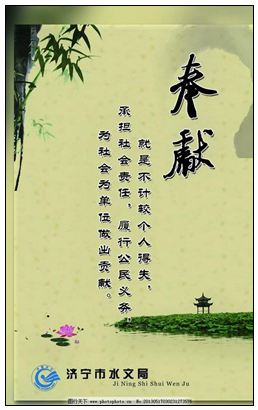 奉献
就是不计较个人得失，
承担社会责任，履行公民义务，
为社会为单位做出贡献。
济宁市水文局
Ji Ning Shi Shui Wen Ju